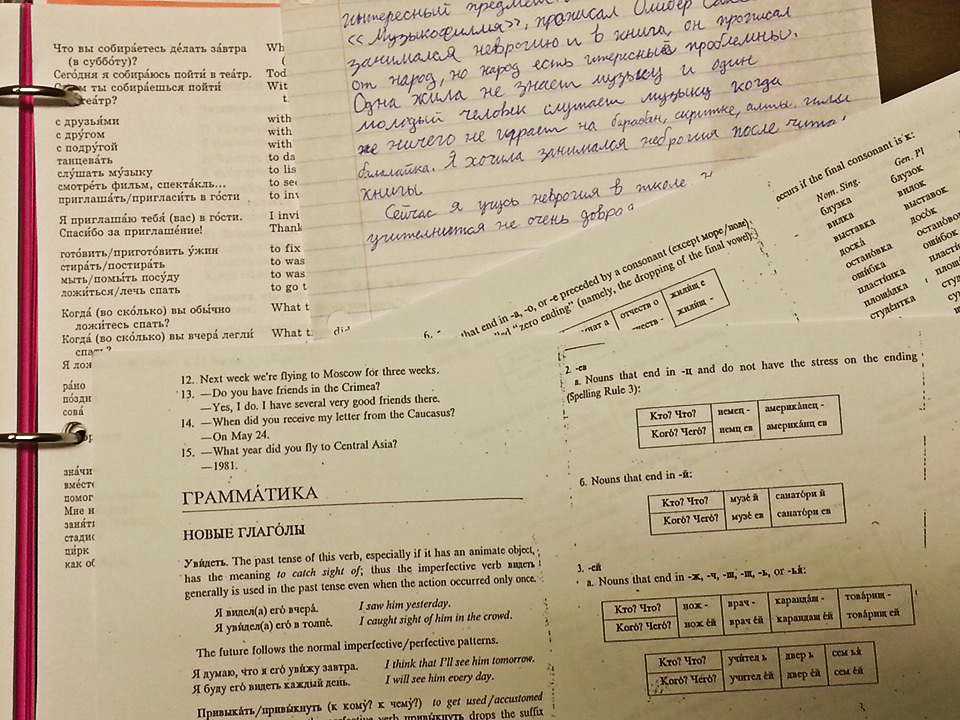 Что вы собира́етесь де́лать за́втра
(в суббо́ту)?
Сего́дня я собира́юсь пойти́ в теа́тр.
ты собира́ешься пойти́
теа́тр?
с друзья́ми
с дру́гом
с подру́гой
танцева́ть
слу́шать му́зыку
смотре́ть фильм, спекта́кль...
приглаша́ть/пригласи́ть в го́сти
Я приглаша́ю тебя́ (вас) в го́сти.
Спаси́бо за приглаше́ние!
гото́вить/пригото́вить у́жин
стира́ть/постира́ть
мыть/помы́ть посу́ду
ложи́ться/лечь спать
Когда́ (во ско́лько) вы обы́чно
ложи́тесь спать?
Когда́ (во ско́лько) вы вчера́ легли́
Я
ра́но
сова́
with
with
with
to
to
to
to
I
to fix
to
to
to
What
What
интересный
«Музыкофилия», прописал Оливер
занимался неврогию и в книга, он прописал
от народ, но народ есть итересный проблемны.
Одна жила не знает музыку и один
молодый человек слушает музыку когда
же ничего не играет на барабан, скрипке, альты,
балалайка. Я хочила занимался неврогия после
книгы
Сейчас я учусь неврогия в школе
не очень
that end in -а, -о, or -е preceded by a consonant (except море/поле)
"zero ending" (namely, the dropping of the final vowel):
отчеств о
жили́щ е
жили́щ -
occurs if the final consonant is к:
Nom. Sing.
Gen. Pl
блу́зка
блу́зок
ви́лка
ви́лок
вы́ставка
вы́ставок
доска́
досо́к
остано́вка
оши́бка
оши́бок
пласти́нка
площа́дка
студе́нтка
12. Next week we're flying to Moscow for three weeks.
13. —Do you have friends in the Crimea?
—Yes, I do. I have several very good friends there.
14. —When did you receive my letter from the Caucasus?
—On May 24.
15. —What year did you fly to Central Asia?
—1981.
ГРАММА́ТИКА
НОВЫЕ ГЛАГО́ЛЫ
Уви́деть. The past tense of this verb, especially if it has an animate object,
has the meaning to catch sight of; thus the imperfective verb ви́деть
generally is used in the past tense even when the action occurred only once.
Я ви́дел(а) его́ вчера́. I saw him yesterday.
Я уви́дел(а) его́ в толпе́. I caught sight of him in the crowd.
The future follows the normal imperfective/perfective patterns.
Я ду́маю, что я его́ уви́жу за́втра. I think that I'll see him tomorrow.
Я бу́ду его́ ви́деть ка́ждый день. I will see him every day.
Привыка́ть/привы́кнуть (к кому́? к чему́?) to get used/accustomed
verb привы́кнуть drops the suffix
2. -ев
а. Nouns that end in -ц and do not have the stress on the ending
(Spelling Rule 3):
Кто? Что? не́мец - америка́нец -
Кого́? Чего́? не́мц ев америка́нц ев
б. Nouns that end in -й:
Кто? Что? музе́ й санато́ри й
Кого́? Чего́? музе́ ев санато́ри ев
3. -ей
а. Nouns that end in -ж, -ч, -ш, -щ, -ь, or -ья́:
Кто? Что? нож - врач - каранда́ш - това́рищ -
Кого́? Чего́? нож е́й врач е́й карандаш е́й това́рищ ей
Кто? Что? учи́тел ь двер ь сем ья́
Кого́? Чего́? учител е́й двер е́й сем е́й